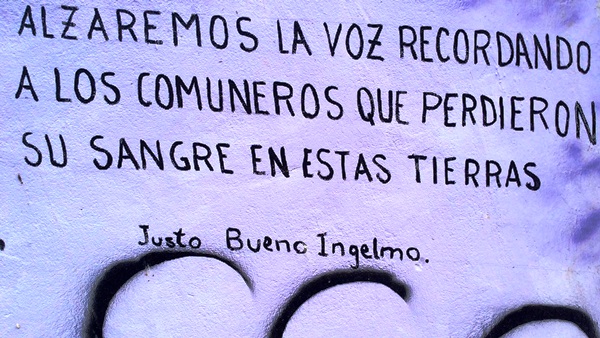 ALZAREMOS LA VOZ RECORDANDO
A LOS COMUNEROS QUE PERDIERON
SU SANGRE EN ESTAS TIERRAS
Justo Bueno Ingelmo.